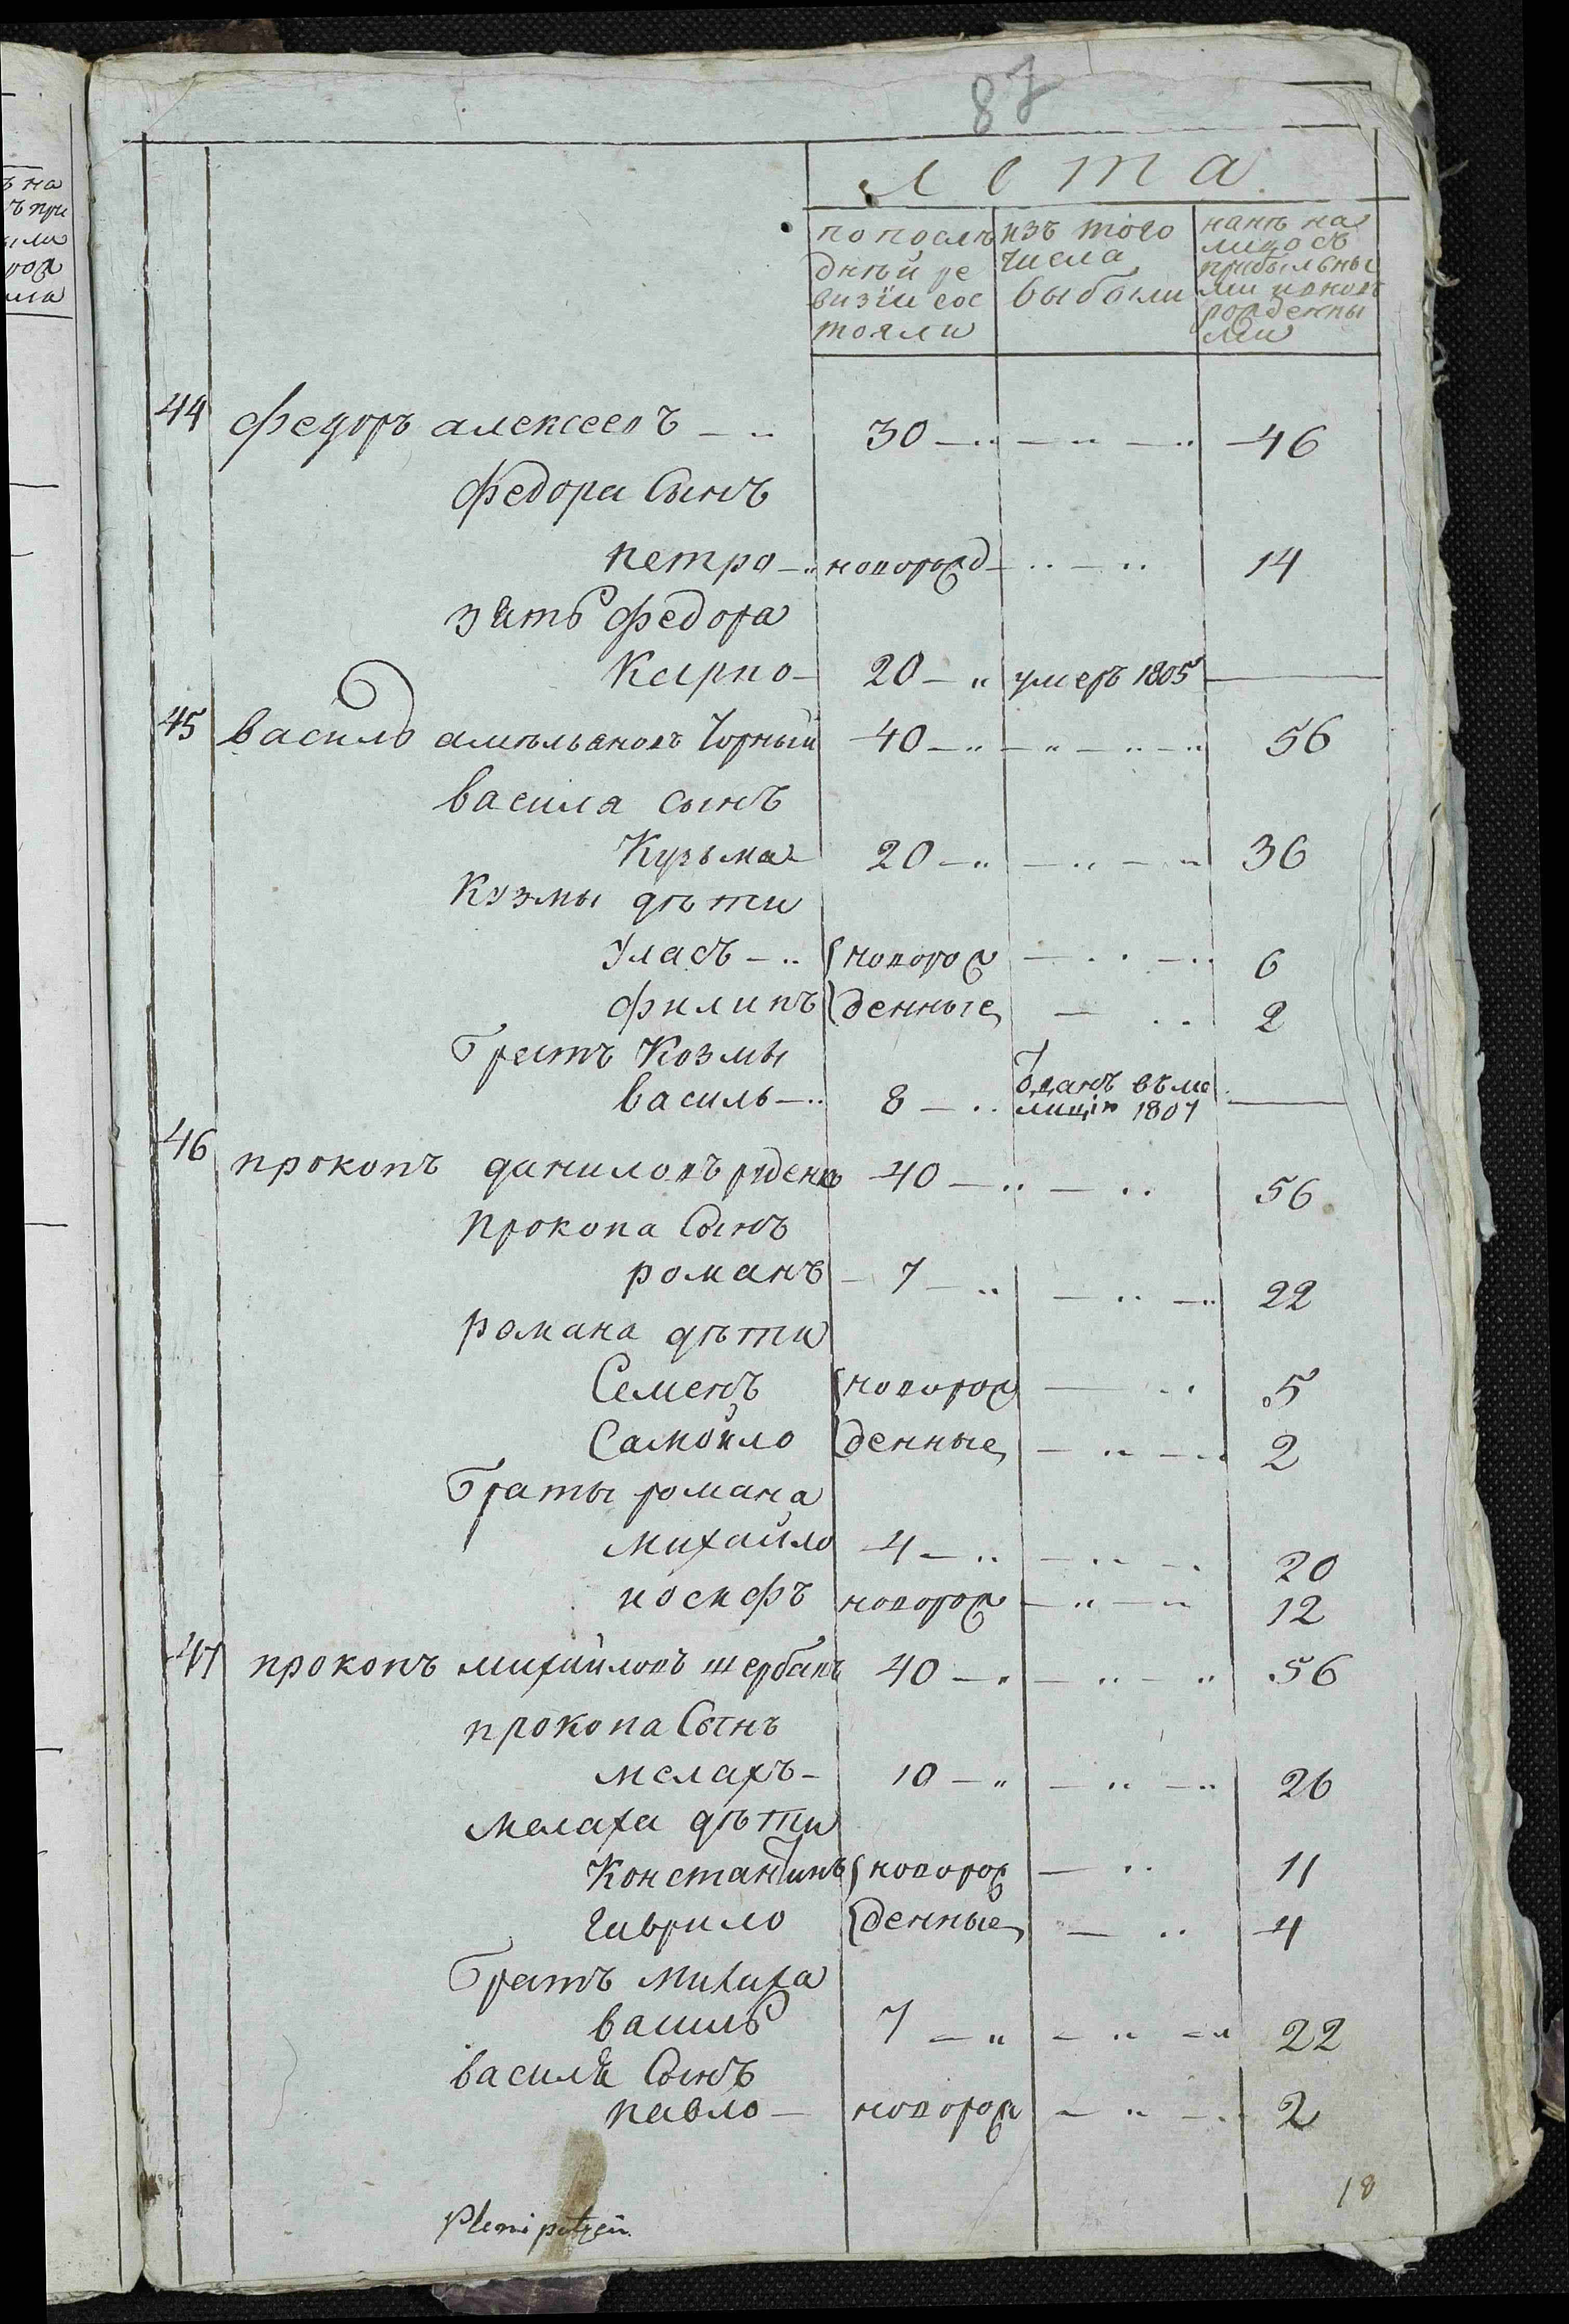 87
лета.
по послѣ дней ре визіи сос тояли
изъ того числа выбыли
нынѣ на лицо съ прибылыны ми и новорожденны ми
44 федоръ алексеевъ 30 46
федора сынъ
петро новорожд 14
зять федора
Карпо 20 умеръ 1805
45 василь амельяновъ Чорный 40 56
василя сынъ
Кузьма 20 36
Кузмы дѣти
Уласъ новорож 6
филипъ денные 2
братъ Козмы
василь 8 одданъ въ ми лицію 1807
46 прокопъ даниловъ 40 56
прокопа сынъ
романъ 7 22
романа дѣти
Семенъ новорож 5
Самойло денные 2
браты романа
михайло 4 20
иосифъ новорож 12
47 прокопъ михайловъ щербанъ 40 56
прокопа сынъ
мелахъ 10 26
мелаха дѣти
Константинъ новорож 11
гаврило денные 4
братъ милаха
василь 7 22
василя сынъ
павло новорож 2
18